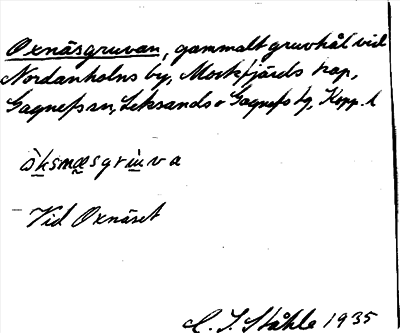 Oxnäsgruvan, gammalt gruvhål vid
Nordanholns by, Mockfjärds kap,
Gagnefs sn, Leksands o Gagnefs tg, Kopp. l
òksnæsgruva
Vid Oxnäset
C. I. Ståhle 1935